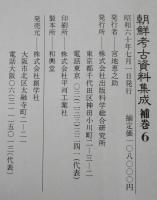 朝鮮考古資料集成 補巻6
昭和六十年七月一日発行 揃定価一〇八、〇〇〇円
発行者 宮地恵之助
発行所 株式会社出版科学総合研究所
東京都千代田区神田小川町二ー三ー二
電話東京
印刷所 株式会社平河工業社
製本所 和興堂
発売元 株式会社創学社
大阪市北区太融寺町二ー一
電話大阪